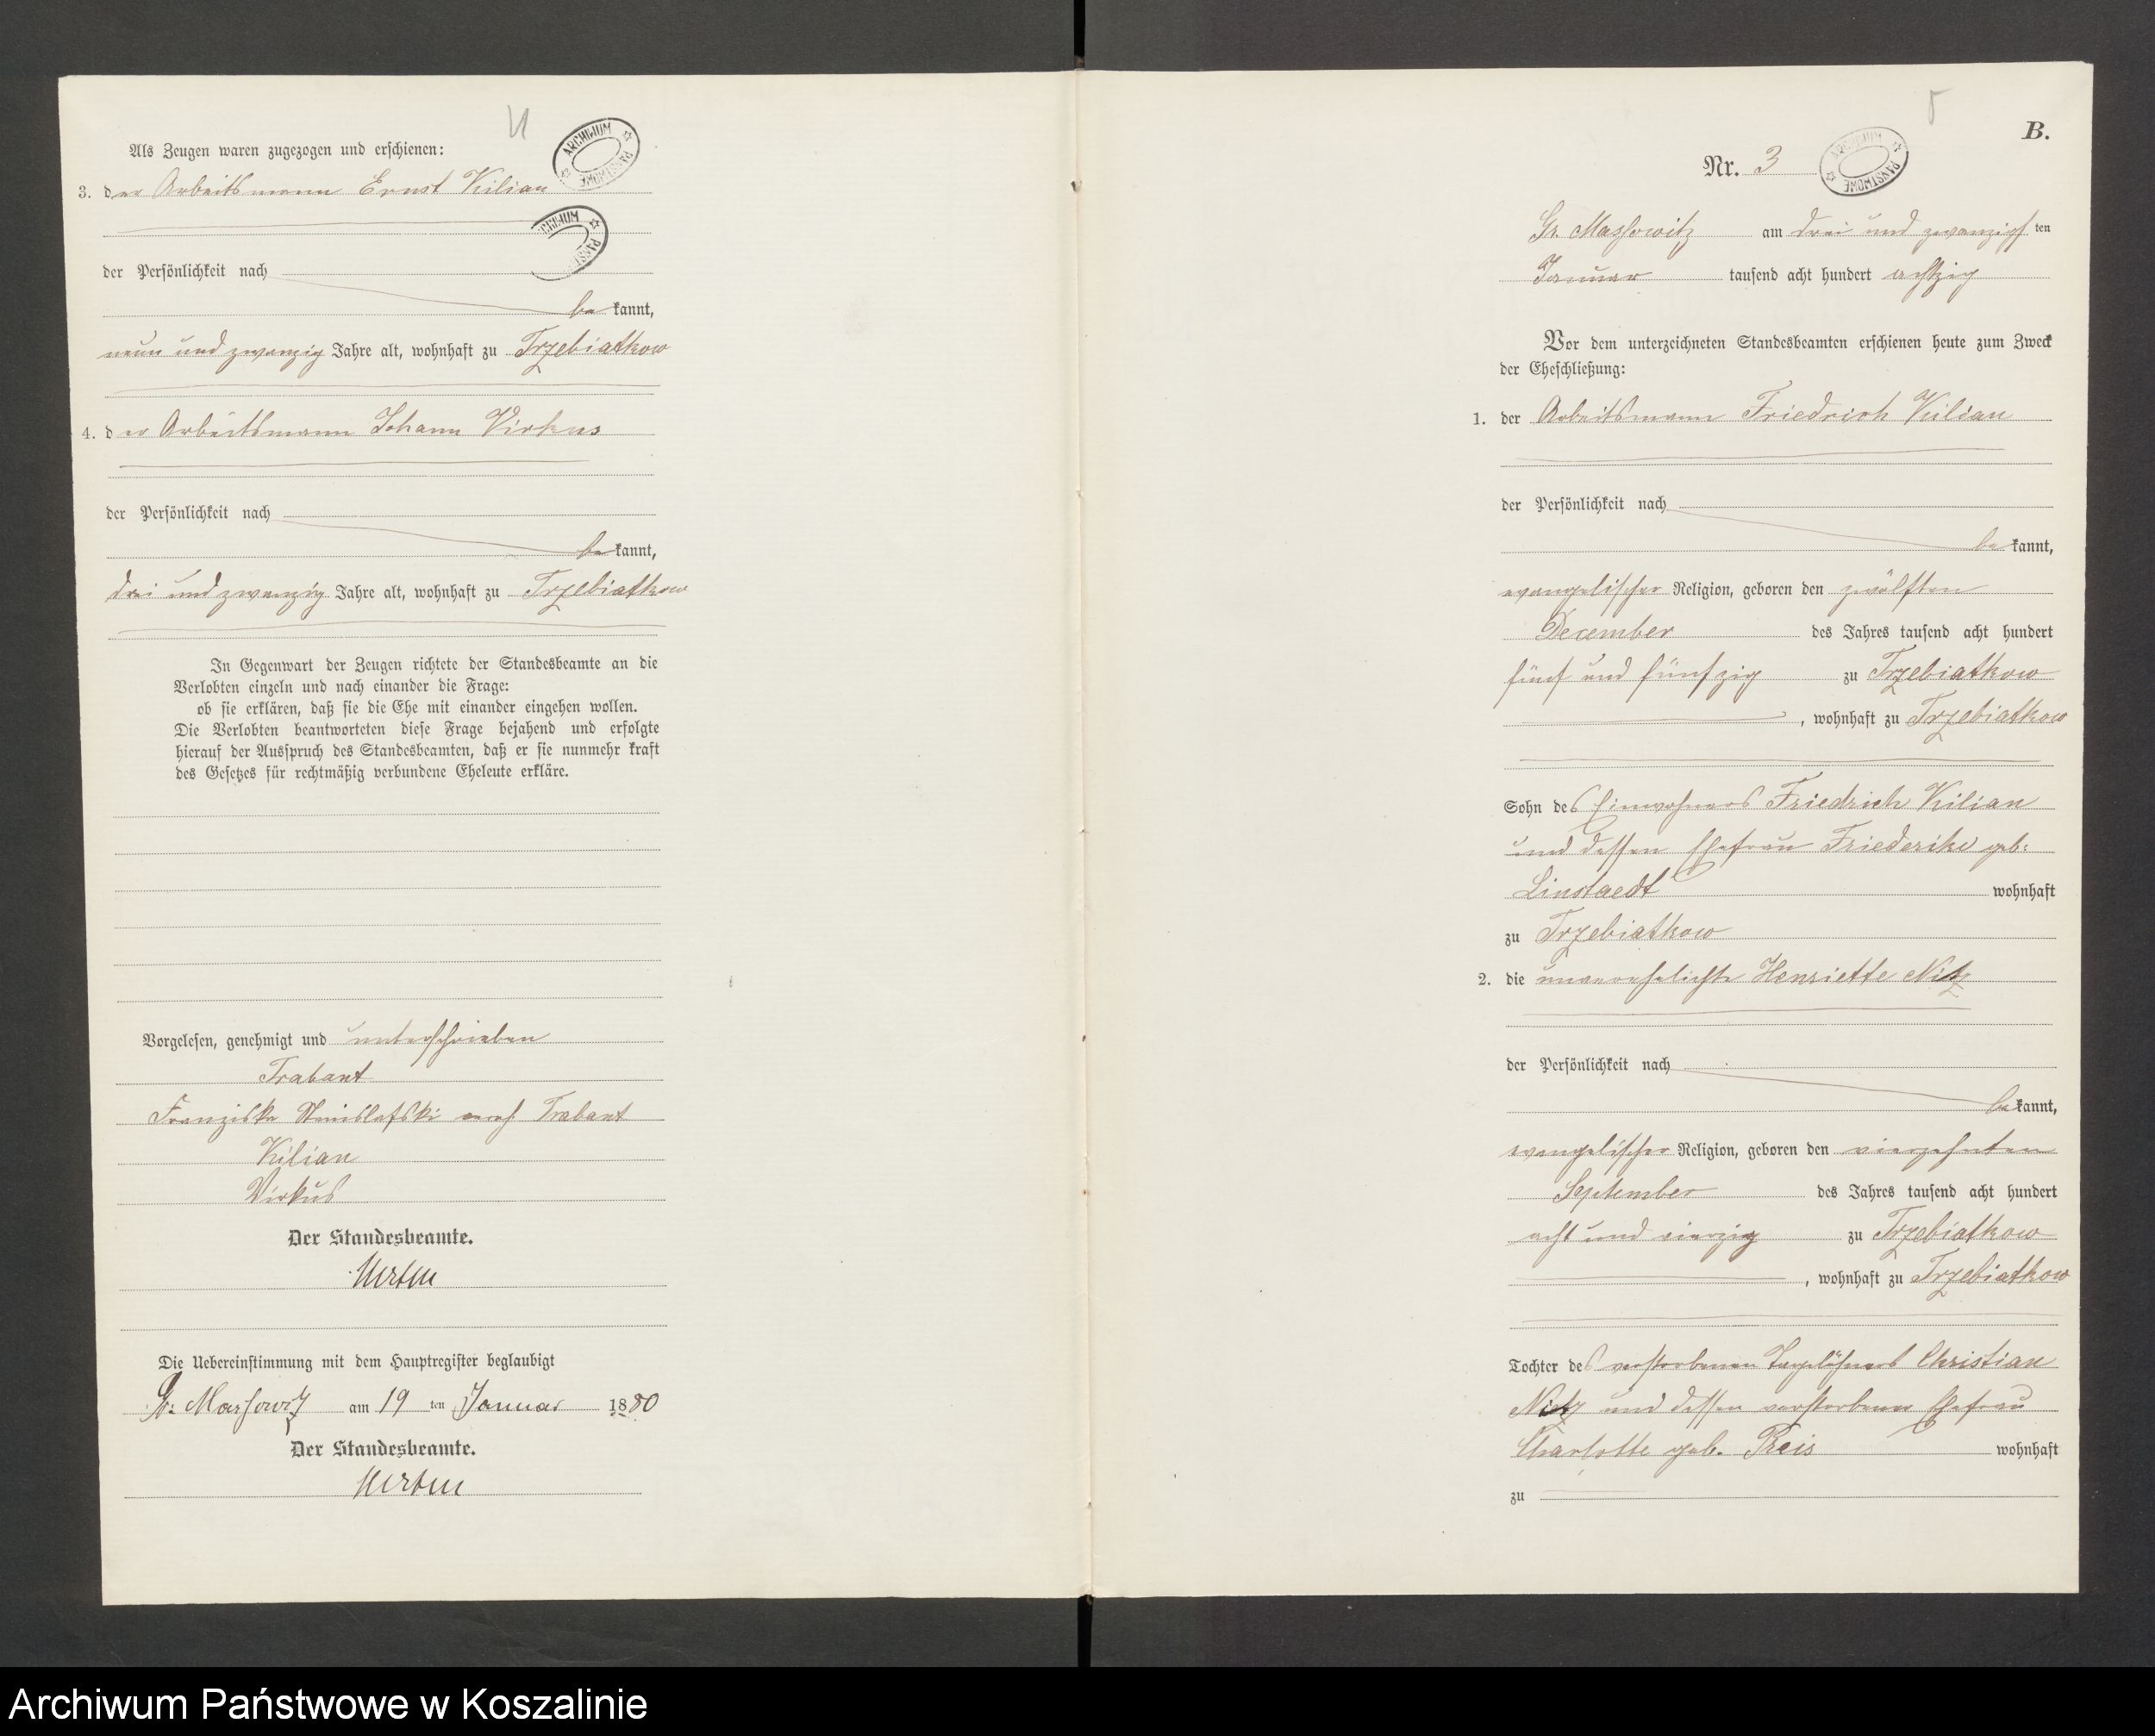 Als Zeugen waren zugezogen und erschienen:
3. der Arbeitsmann Ernst Kilian
der Persönlichkeit nach
bekannt,
neun und zwanzig Jahre alt, wohnhaft zu Trzebiatkow
4. der Arbeitsmann Johann Virkus
der Persönlichkeit nach
bekannt,
drei und zwanzig Jahre alt, wohnhaft zu Trzebiatkow
In Gegenwart der Zeugen richtete der Standesbeamte an die
Verlobten einzeln und nach einander die Frage:
ob sie erklären, daß sie die Ehe mit einander eingehen wollen.
Die Verlobten beantworteten diese Frage bejahend und erfolgte
hierauf der Ausspruch des Standesbeamten, daß er sie nunmehr kraft
des Gesetzes für rechtmäßig verbundene Eheleute erkläre.
Vorgelesen, genehmigt und unterschrieben
Trabant
Franziska Trabant
Kilian
Virkus
Der Standesbeamte.
Die Uebereinstimmung mit dem Hauptregister beglaubigt
Gr. Massowitz am 19 ten Januar 1880
Der Standesbeamte.
ARCHIWUM PAŃSTWOWE
5
B.
Nr. 3
ARCHIWUM PAŃSTWOWE
Gr. Massowitz am drei und zwanzigsten
Januar tausend acht hundert achtzig
Vor dem unterzeichneten Standesbeamten erschienen heute zum Zweck
der Eheschließung:
1. der Arbeitsmann Friedrich Kilian
der Persönlichkeit nach
bekannt,
evangelischer Religion, geboren den zwölften
December des Jahres tausend acht hundert
fünf und fünfzig zu Trzebiatkow
, wohnhaft zu Trzebiatkow
Sohn des Einwohners Friedrich Kilian
und dessen Ehefrau Friederike geb:
Linstaedt wohnhaft
zu Trzebiatkow
2. die unverehelichte Henriette Nitz
der Persönlichkeit nach
bekannt,
evangelischer Religion, geboren den vierzehnten
September des Jahres tausend acht hundert
acht und vierzig zu Trzebiatkow
, wohnhaft zu Trzebiatkow
Tochter des verstorbenen Tagelöhners Christian
Nitz und dessen verstorbener Ehefrau
Charlotte geb. Preis wohnhaft
zu
Archiwum Państwowe w Koszalinie